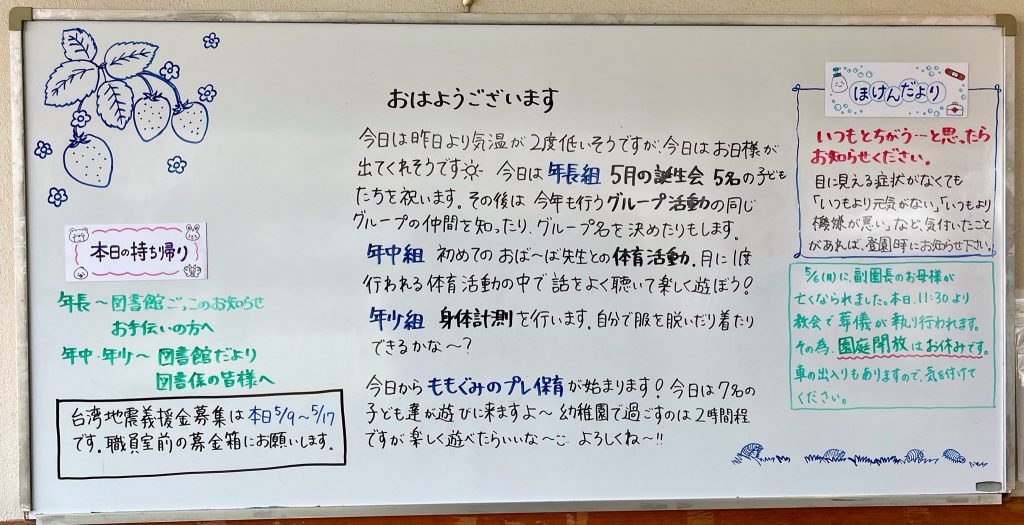 おはようございます
今日は昨日より気温が2度低いそうですが、今日はお日様が
出てくれそうです 今日は年長組 5月の誕生会 5名の子ども
たちを祝います。その後は 今年も行うグループ活動の同じ
グループの仲間を知ったり、グループ名を決めたりもします。
年中組 初めての おば〜ば先生との体育活動。月に1度
行われる体育活動の中で話をよく聴いて楽しく遊ぼう!
年少組 身体計測を行います。自分で服を脱いだり着たり
できるかな〜?
今日からももぐみのプレ保育が始まります! 今日は7名の
子ども達が遊びに来ますよ〜 幼稚園で過ごすのは2時間程
ですが楽しく遊べたらいいな〜 よろしくね〜!!
本日の持ち帰り
年長〜図書館ごっこのお知らせ
お手伝いの方へ
年中・年少〜 図書館だより
図書係の皆様へ
台湾地震義援金募集は本日5/9〜5/17
です。職員室前の募金箱にお願いします。
ほけんだより
いつもとちがう…と思ったら
お知らせください。
目に見える症状がなくても
「いつもより元気がない」「いつもより
機嫌が悪い」など、気付いたこと
があれば、登園時にお知らせ下さい。
5/6(月)に、副園長のお母様が
亡くなられました。本日、11:30より
教会で葬儀が執り行われます。
その為、園庭開放はお休みです。
車の出入りもありますので、気を付けて
ください。